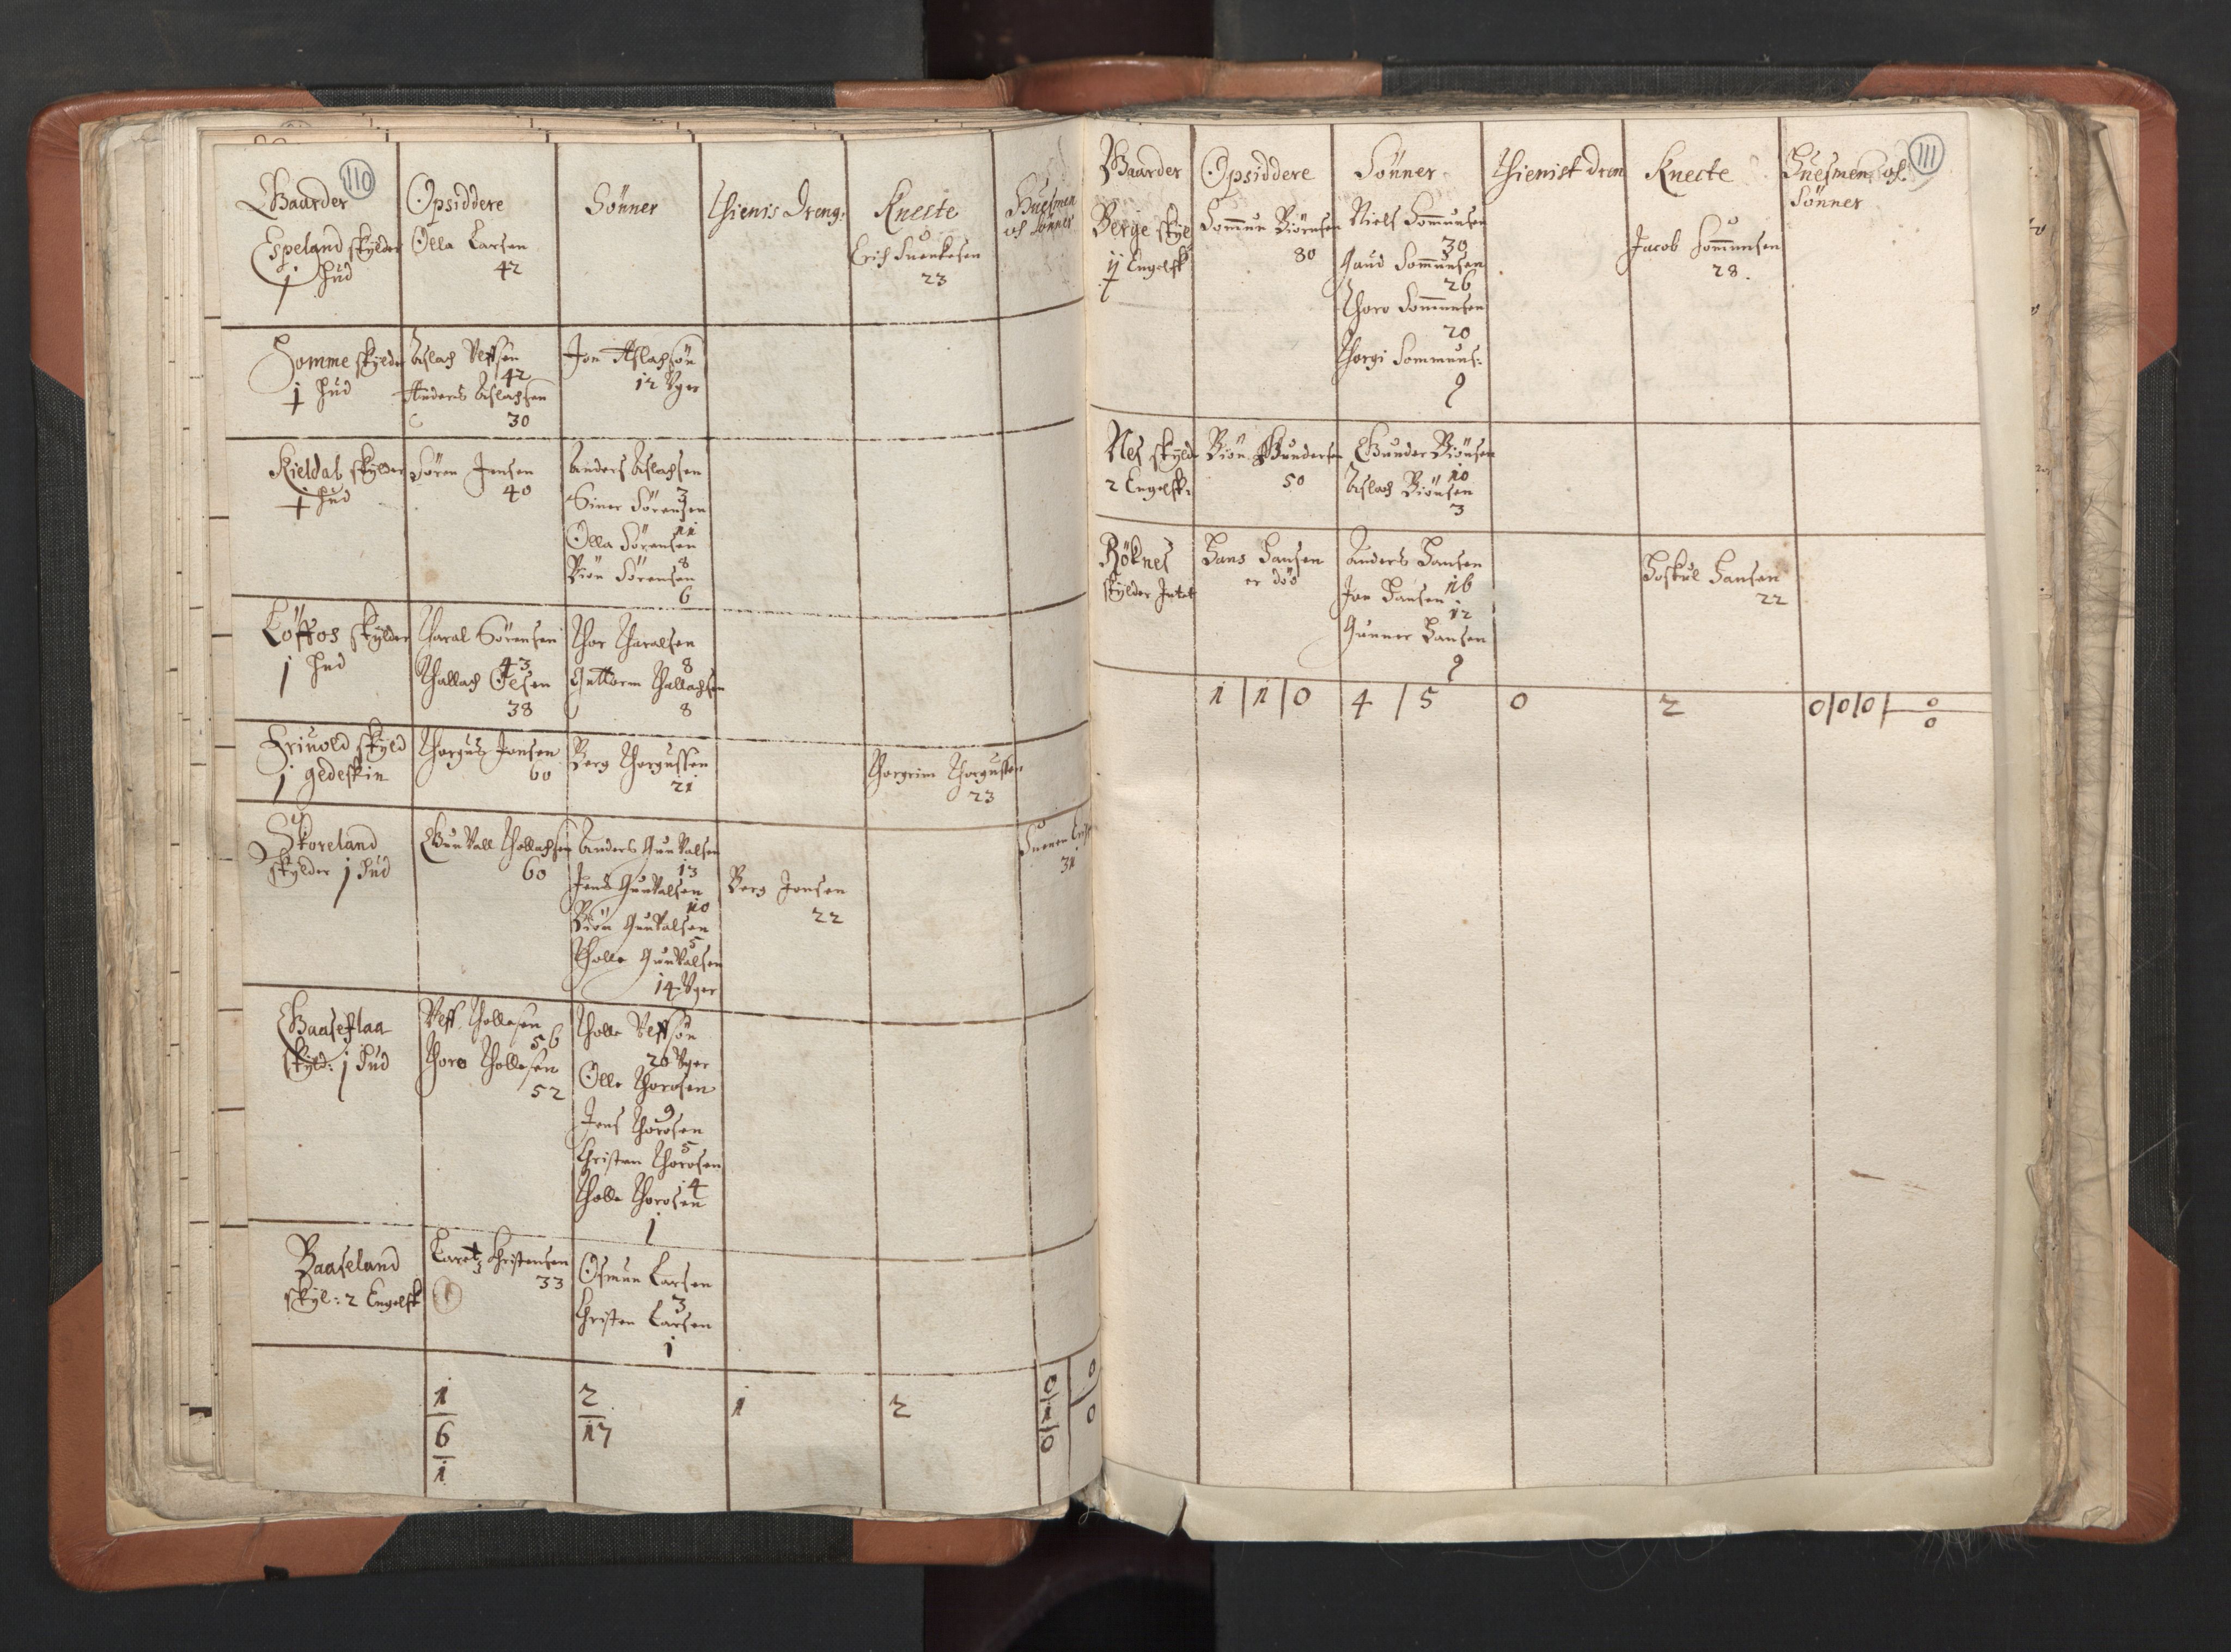 110
Gaarder
Opsiddere
Sönner
Thienis Dreng:
Knecte
Huusmen
och Sönner
Espeland skylder
j Hud
Olla Larsen
42
Erich Suenkesen
23
Homme skylder
j Hud
Aslach Ulfsen
42
Anders Aslachsen
30
Jon Aslachsön
12 Uger
Kieldal skylder
j Hud
Sören Jensen
40
Anders Aslachsen
3
Siner Sörensen
11
Olla Sörensen
8
Biön Sörensen
6
Löffos skylder
j Hud
Tharal Sörensen
43
Thallach Olsen
38
Thor Tharalsen
8
Guttorm Thallachsen
8
Griuold skyld
j gedeskin
Thorgus Jonsen
60
Berg Thorgussen
21
Thorgrim Thorgussen
23
Skoreland
skylder j Hud
Gunvall Thollachsen
60
Anders Gunvalsen
13
Jens Gunvalsen
10
Biön Gunvalsen
5
Tholle Gunvalsen
14 Uger
Berg Jonsen
22
31
Baaseflaa
skyld: j Hud
Ulff Thollesen
56
Thoro Thollesen
52
Tholle Ulffsön
20 Uger
Olle Thorosen
9
Jens Thorosen
5
Christen Thorosen
4
Tholle Thorosen
1
Baaseland
skyl: 2 Engelsk
Laretz Christensen
33
Osmun Larsen
3
Christen Larsen
1
1
6
1
2
17
1
2
0/1/0
0
0
111
Gaarder
Opsiddere
Sönner
Thienist dren
Knecte
Huusmen och
Sönner
Berge skyl
ij Engelsk
Sommun Biörnsen
80
Niels Sommunsen
30
Gaud Sommunsen
26
Thoro Sommunsen
20
Thorgi Sommuns:
9
Jacob Sommunsen
28.
Nes skyld
2 Engelsk:
Biön Gundersen
50
Gunder Biönsen
10
Aslach Biönsen
3
Röknes
skylder Intet
Hans Hansen
er döö
Anders Hansen
16
Jon Hansen
12
Gunner Hansen
9
Hoskul Hansen
22
1/1/0
4/5
0
2
0/0/0/
0
0